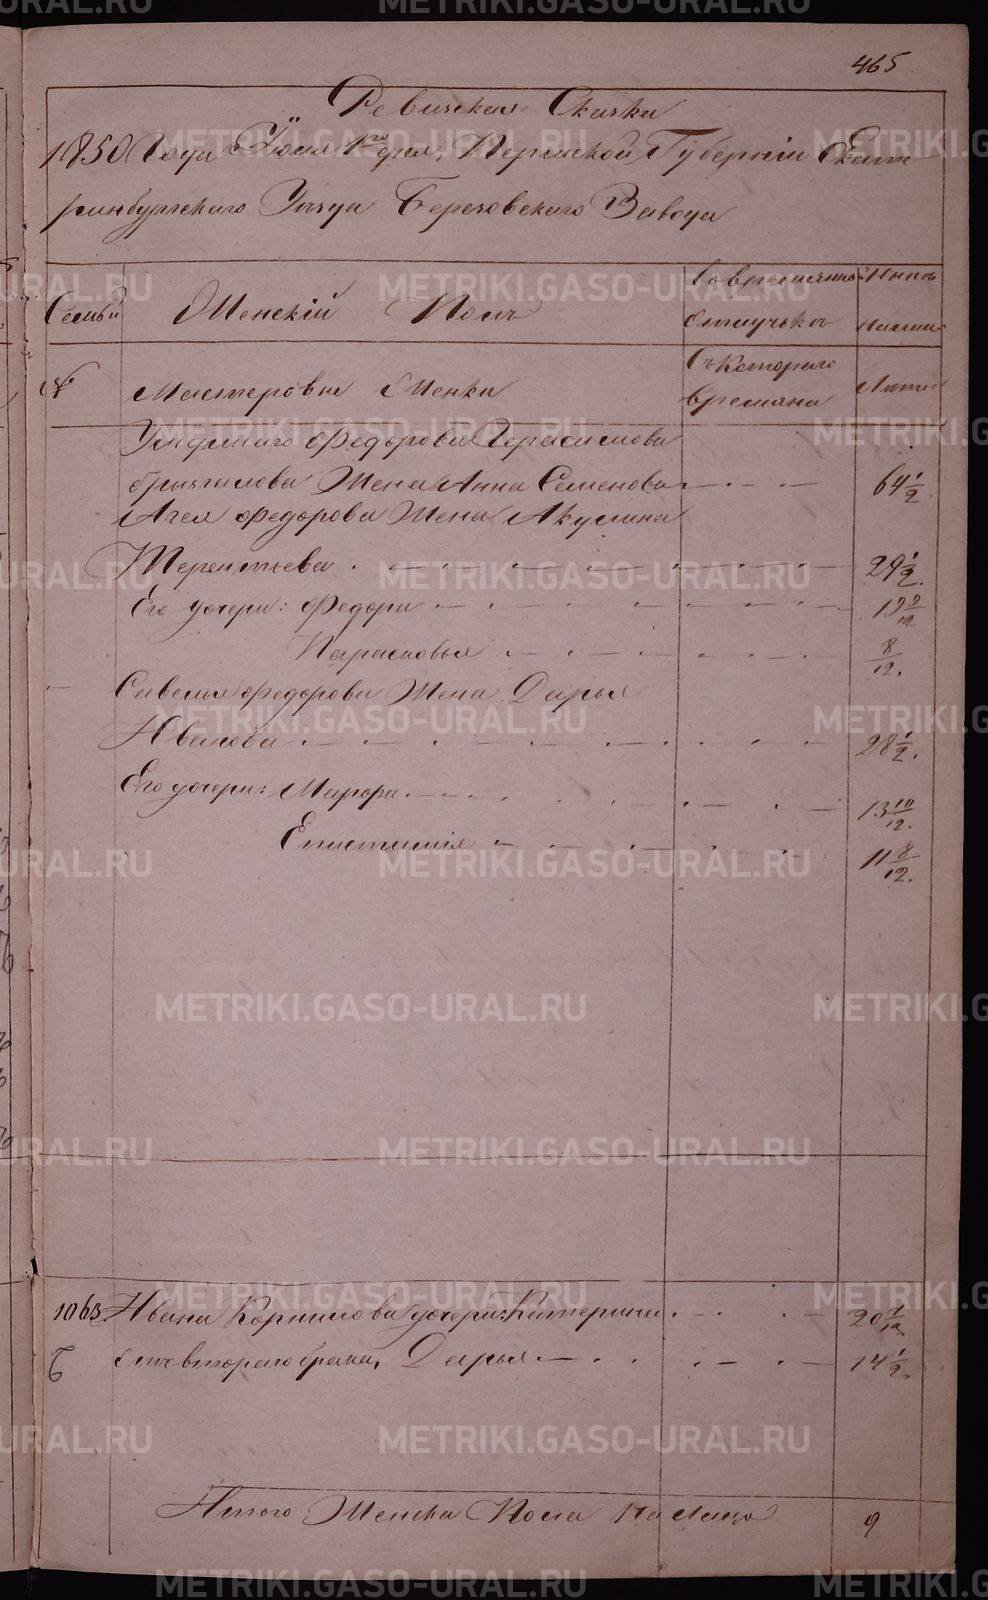 465
Ревизская Сказка
1850 Года Июля 1го дня, Пермской Губернии Екате
ринбургскаго Уезда Березовскаго Завода
Семьи
Женский Полъ
Во временной
отлучькѣ
Ныне
налицо
№
Мастеровые Женки
Съ котораго
времяни
Лета
Умершаго Федорова Герасимова
Жена Анна Семенова 64 1/2
Агея Федорова Жена Акулина
Терентьева 29 1/2
Его дочери: Федора 19 9/12
Парасковья 8/12
Савелья Федорова Жена Дарья
Иванова 28 1/2
Его дочери: Марфа 13 10/12
Епистимия 11 8/12
1063 Ивана Корнилова дочери: Катерина 20
отъ втораго брака, Дарья 14 1/2
Итого Женска Пола на лицо 9
METRIKI.GASO-URAL.RU